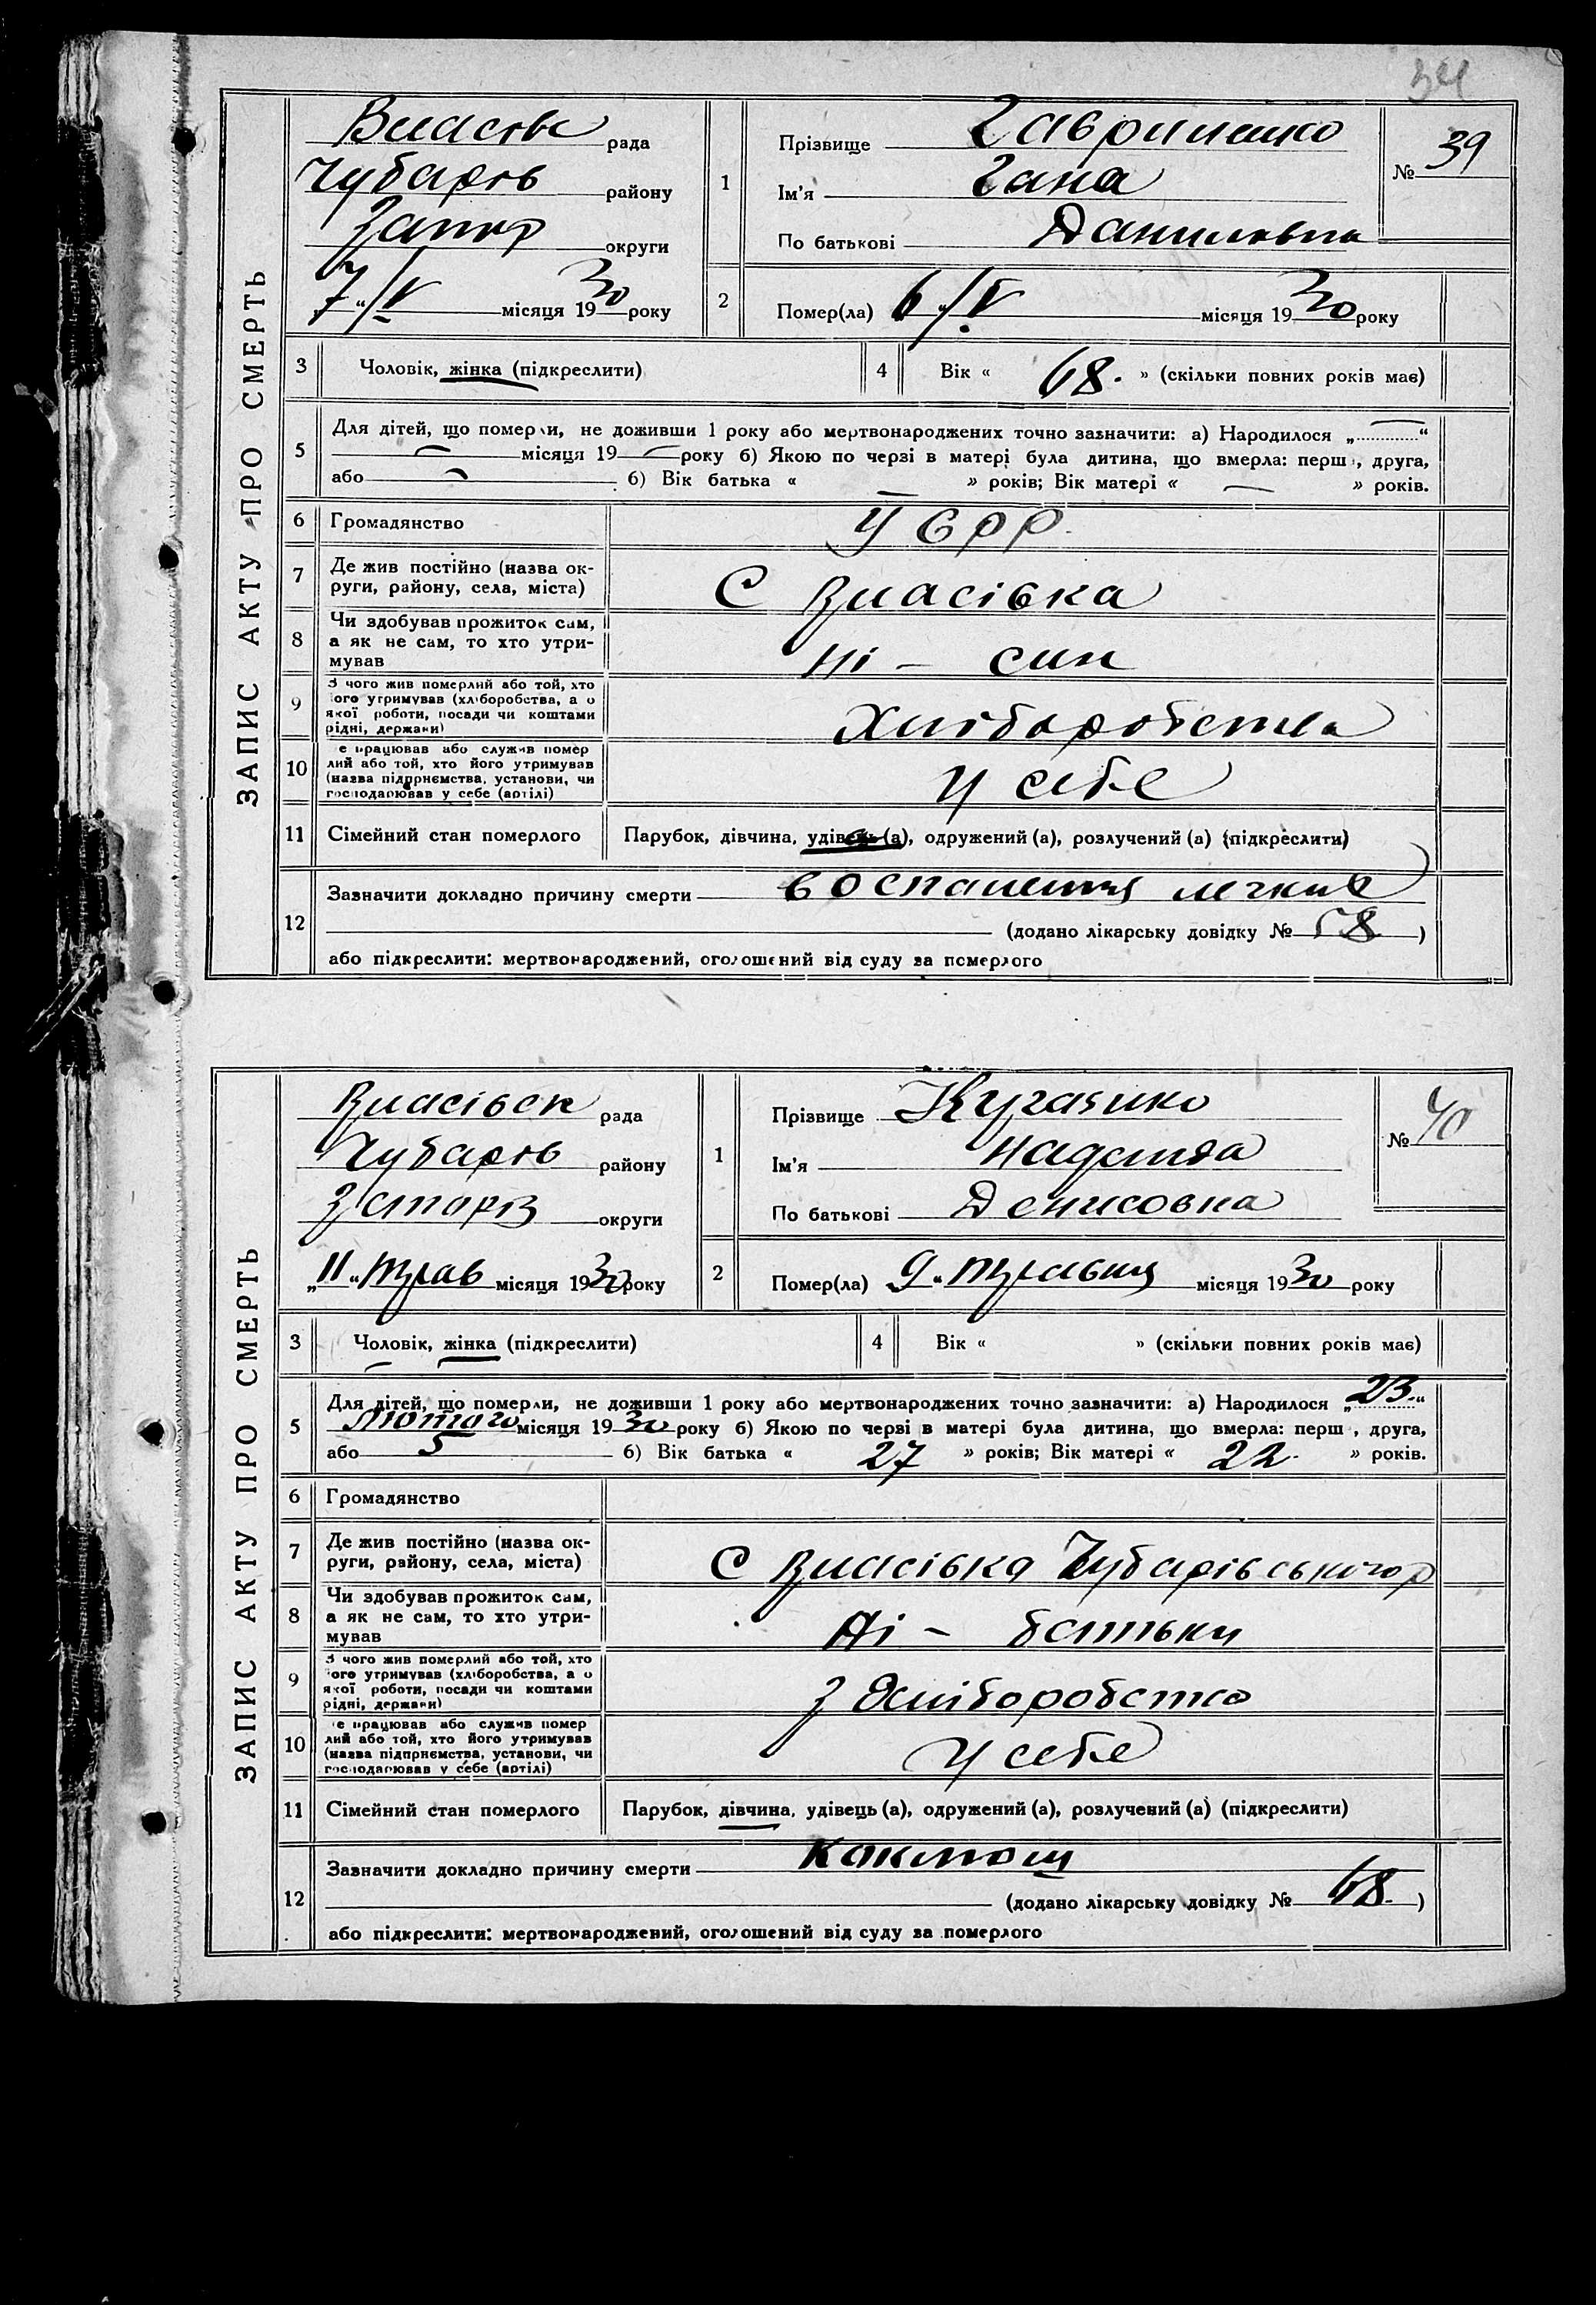 34
ЗАПИС АКТУ ПРО СМЕРТЬ
Власівс рада
Чубарів району
Запор округи
„7“/V місяця 1930 року
1
Прізвище Гавриленко
Ім'я Гана
По батькові Даниловна
№ 39
2
Помер(ла) 6/V місяця 1930 року
3 Чоловік, жінка (підкреслити)
4 Вік « 68. » (скільки повних років має)
5 Для дітей, що померли, не доживши 1 року або мертвонароджених точно зазначити: а) Народилося „ — “
— місяця 19 — року б) Якою по черзі в матері була дитина, що вмерла: перша, друга,
або — 6) Вік батька « — » років; Вік матері « — » років.
6 Громадянство УСРР.
7 Де жив постійно (назва ок-
руги, району, села, міста) С Власівка
8 Чи здобував прожиток сам,
а як не сам, то хто утри-
мував Ні – син
9 З чого жив померлий або той, хто
його утримував (хліборобства, а о
якої роботи, посади чи коштами
рідні, держави) Хліборобства
10 Де працював або служив помер
лий або той, хто його утримував
(назва підприємства, установи, чи
господарював у себе (артілі) У себе
11 Сімейний стан померлого Парубок, дівчина, удівець (а), одружений (а), розлучений (а) (підкреслити)
12 Зазначити докладно причину смерти воспаления легких
(додано лікарську довідку № 58)
або підкреслити: мертвонароджений, оголошений від суду за померлого
ЗАПИС АКТУ ПРО СМЕРТЬ
Власівск рада
Чубарів району
Запоріз округи
„11“ Трав місяця 1930 року
1
Прізвище
Ім'я Надежда
По батькові Денисовна
№ 40
2
Помер(ла) 9 „ травня місяця 1930 року
3 Чоловік, жінка (підкреслити)
4 Вік « » (скільки повних років має)
5 Для дітей, що померли, не доживши 1 року або мертвонароджених точно зазначити: а) Народилося „23.“
Лютаго місяця 1930 року б) Якою по черві в матері була дитина, що вмерла: перш, друга,
або 5 6) Вік батька « 27 » років; Вік матері « 22. » років.
6 Громадянство
7 Де жив постійно (назва ок-
руги, району, села, міста) С Власівка Чубарівського р
8 Чи здобував прожиток сам,
а як не сам, то хто утри-
мував Ні – батьки
9 З чого жив померлий або той, хто
його утримував (хліборобства, а о
якої роботи, посади чи коштами
рідні, держави) З хліборобства
10 Де працював або служив помер
лий або той, хто його утримував
(назва підприємства, установи, чи
господарював у себе (артілі) У себе
11 Сімейний стан померлого Парубок, дівчина, удівець (а), одружений (а), розлучений (а) (підкреслити)
12 Зазначити докладно причину смерти Коклюш
(додано лікарську довідку № 68.)
або підкреслити: мертвонароджений, оголошений від суду за померлого